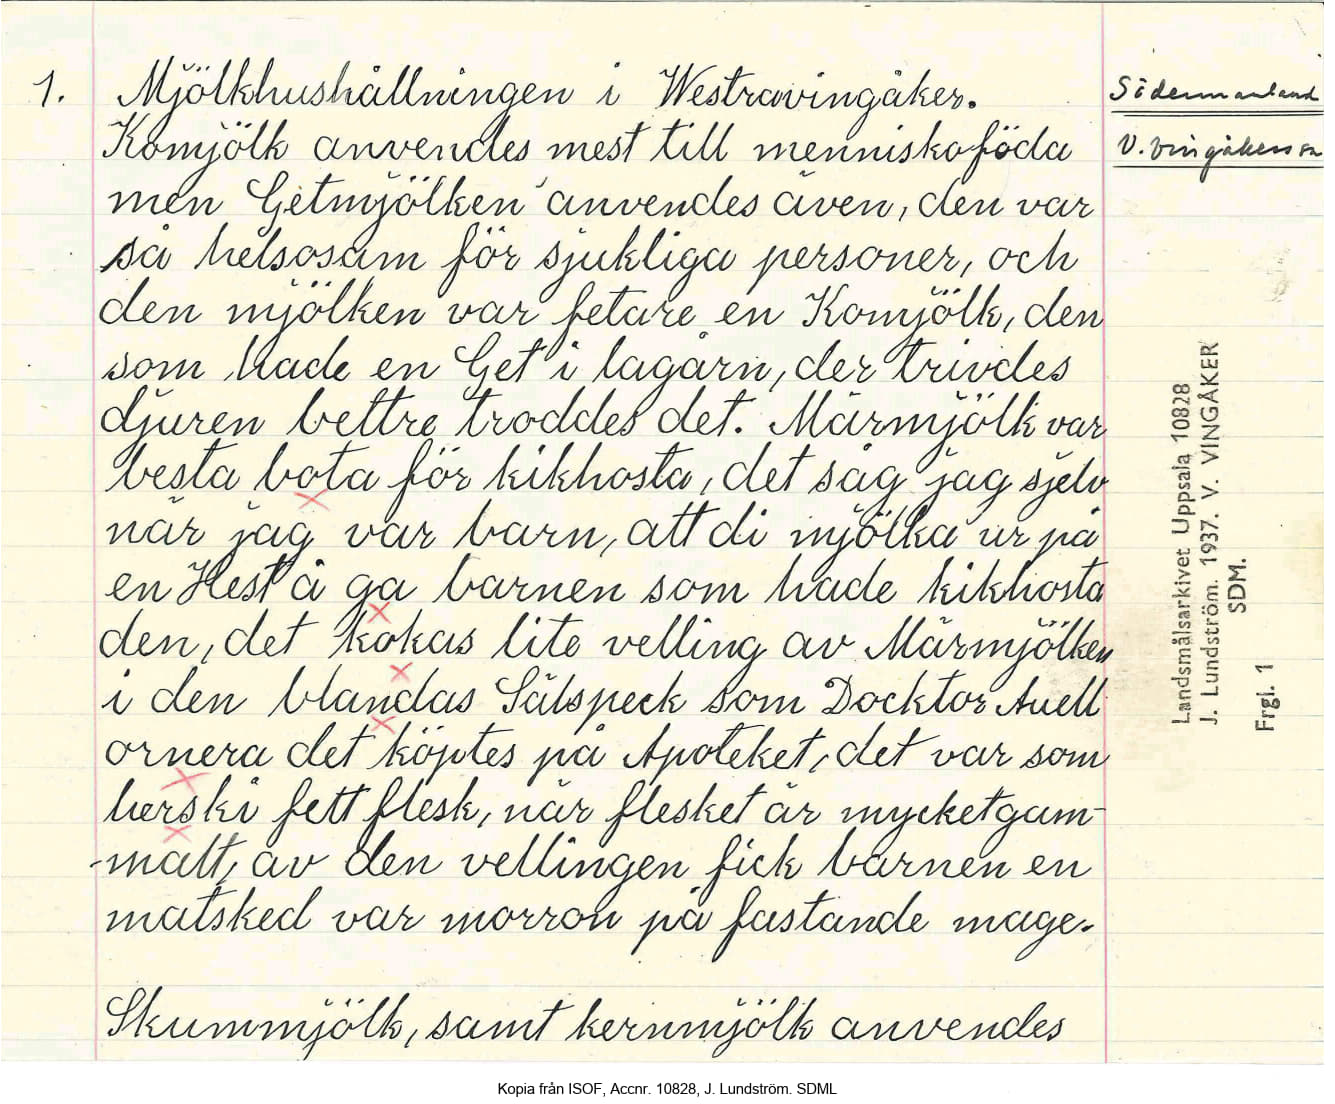 1. Mjölkhushållningen i Westravingåker.
Komjölk anvendes mest till menniskoföda
men Getmjölken anvendes även, den var
så helsosam för sjukliga personer, och
den mjölken var fetare en Komjölk, den
som hade en Get i lagårn, der trivdes
djuren bettre troddes det. Märmjölk var
besta bota för kikhosta, det såg jag sjelv
när jag var barn, att di mjölka ur på
en Hest å ga barnen som hade kikhosta
den, det kokas lite velling av Märmjölken
i den blandas Sälspeck som Docktor Auell
ornera det köptes på Apoteket, det var som
herski fett flesk, när flesket är mycket gam-
malt, av den vellingen fick barnen en
matsked var morron på fastande mage.
Skummjölk, samt kernmjölk anvendes
Södermanland
V. Vingåkers sn
Landsmålsarkivet Uppsala 10828
J. Lundström. 1937. V. VINGÅKER
SDM.
Frgl. 1
Kopia från ISOF, Accnr. 10828, J. Lundström. SDML